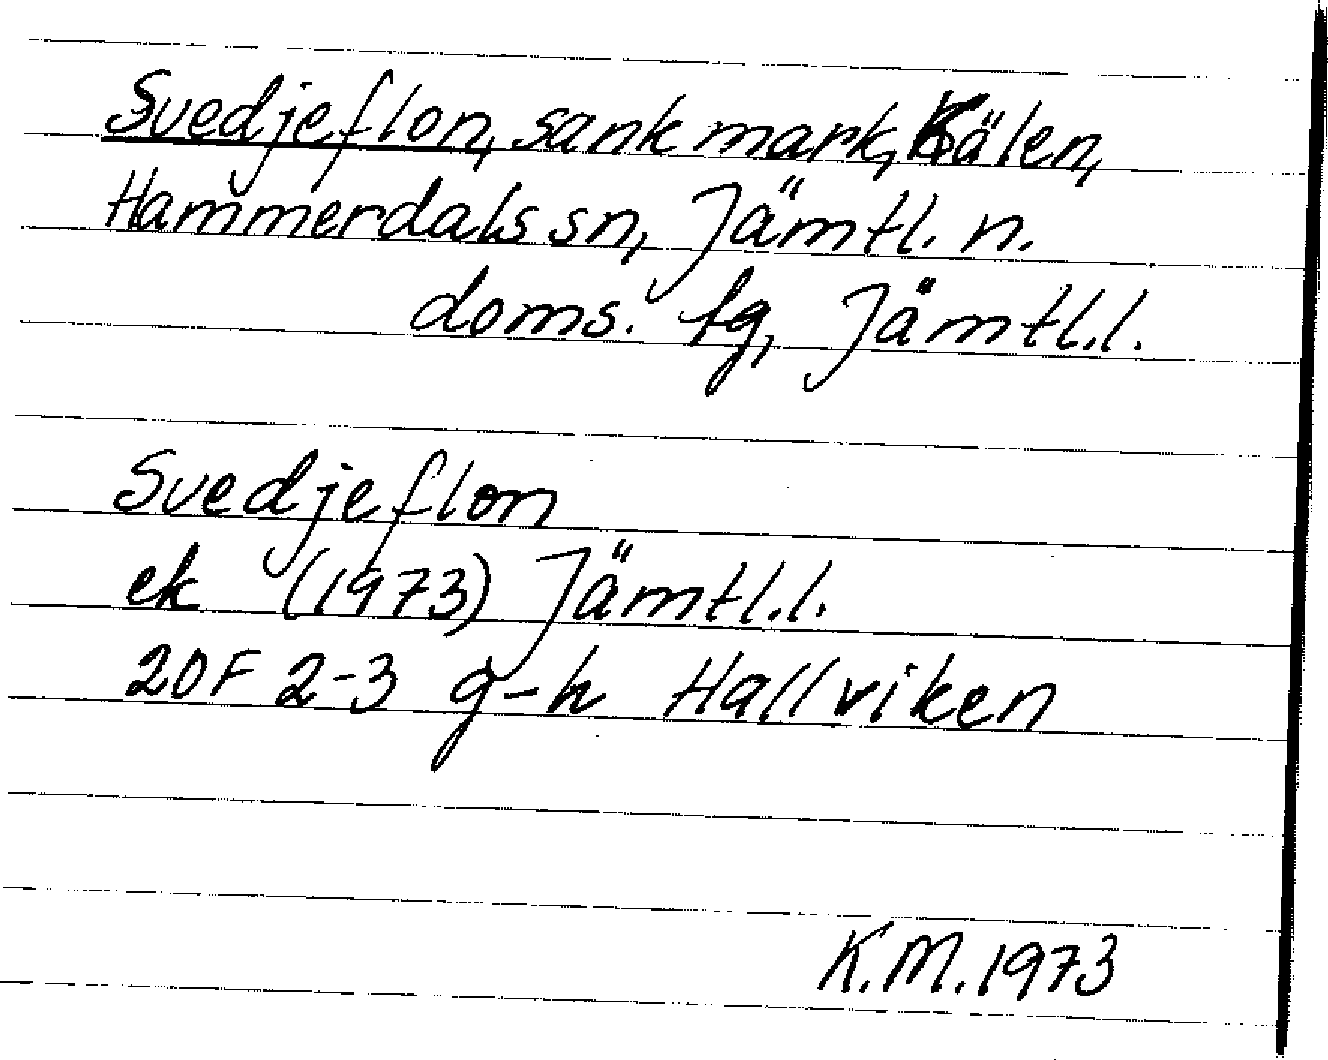 Svedjeflon, sank mark, Kälen,
Hammerdals sn, Jämtl. n.
doms. fg, Jämtl.l.
Svedjeflon
ek (1973) Jämtl.l.
20F 2-3 g-h Hallviken
K.M. 1973